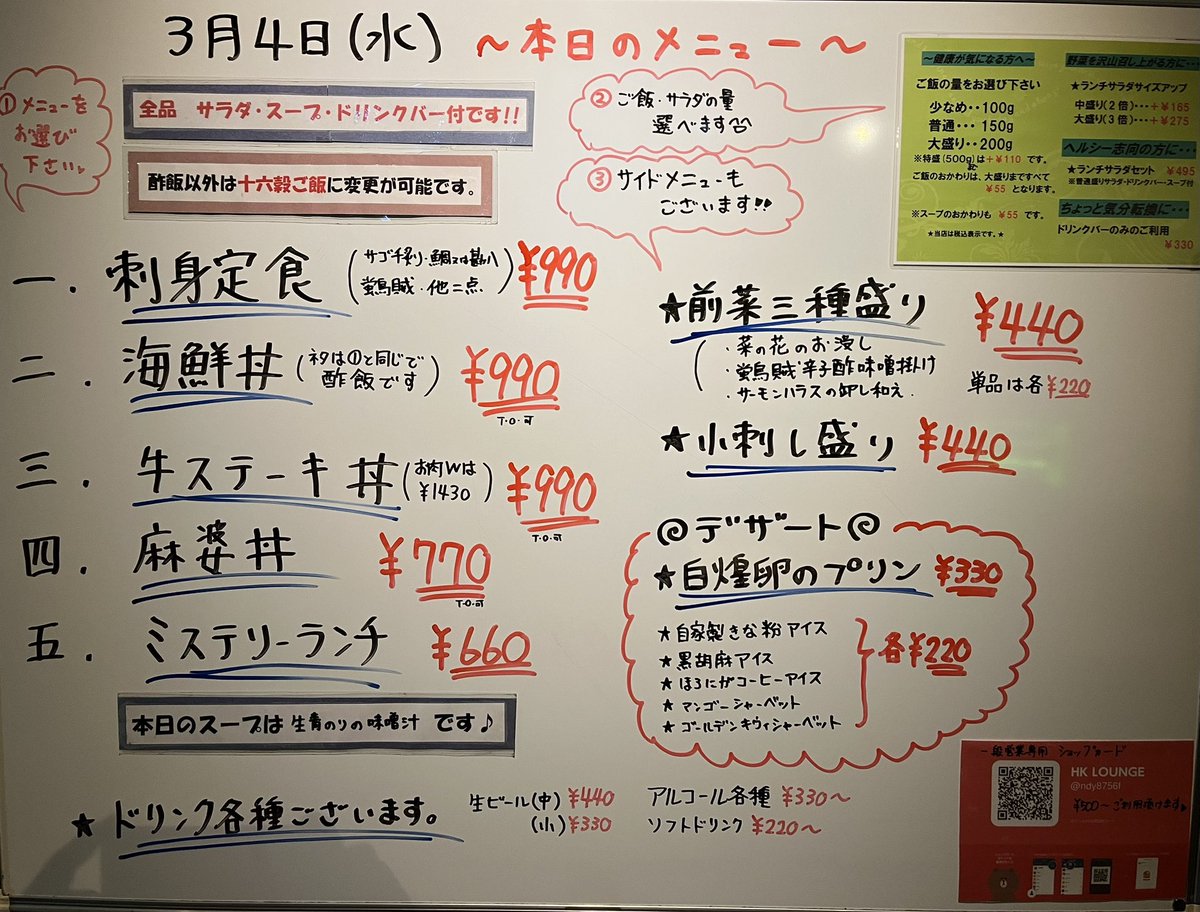 3月4日(水) ～本日のメニュー～
①メニューを
お選び
下さい
全品 サラダ・スープ・ドリンクバー付です!!
酢飯以外は十六穀ご飯に変更が可能です。
②ご飯・サラダの量
選べます
③サイドメニューも
ございます!!
～健康が気になる方へ～
ご飯の量をお選び下さい
少なめ・・100g
普通・・・150g
大盛り・・200g
※特盛(500g)は+¥110 です。
ご飯のおかわりは、大盛りまですべて
¥55 となります。
※スープのおかわりも ¥55 です。
★当店は税込表示です。★
野菜を沢山召し上がる方に・・・
★ランチサラダサイズアップ
中盛り(2倍)・・・+¥165
大盛り(3倍)・・・+¥275
ヘルシー志向の方に・・・
★ランチサラダセット ¥495
※普通盛りサラダ・ドリンクバー・スープ付
ちょっと気分転換に・・・
ドリンクバーのみのご利用
¥330
一.刺身定食(サゴチ炙り・鯛又は勘八 ¥990
蛍烏賊・他二点)
二.海鮮丼(ネタは①と同じで ¥990
酢飯です)
T・O・可
三.牛ステーキ丼(お肉Wは ¥990
¥1430)
T・O・可
四.麻婆丼 ¥770
T・O・可
五.ミステリーランチ ¥660
本日のスープは 生青のりの味噌汁 です♪
★前菜三種盛り ¥440
・菜の花のお浸し
・蛍烏賊辛子酢味噌掛け
・サーモンハラスの卸し和え
単品は各¥220
★小刺し盛り ¥440
デザート
★自煌卵のプリン ¥330
★自家製きな粉アイス
★黒胡麻アイス
★ほろにがコーヒーアイス
★マンゴーシャーベット
★ゴールデンキウィシャーベット
各¥220
★ドリンク各種ございます。
生ビール(中)¥440
(小)¥330
アルコール各種 ¥330～
ソフトドリンク ¥220～
一般営業専用 ショップカード
HK LOUNGE
@ndy8756f
¥500～ご利用頂けます